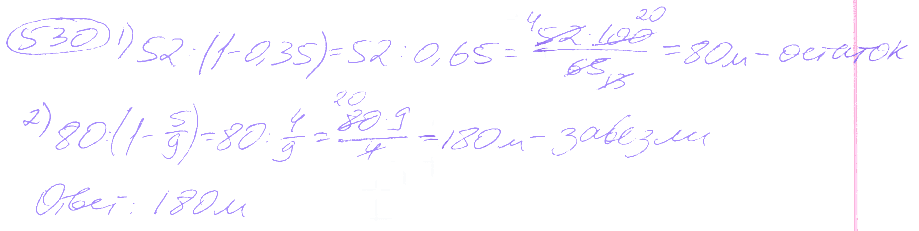 530 1) 52 : (1-0,35) = 52 : 0,65 = 52 · 100 / 65 = 80 м - остаток
2) 80 : (1 - 5/9) = 80 : 4/9 = 80 · 9 / 4 = 180 м - завезли
Ответ: 180 м